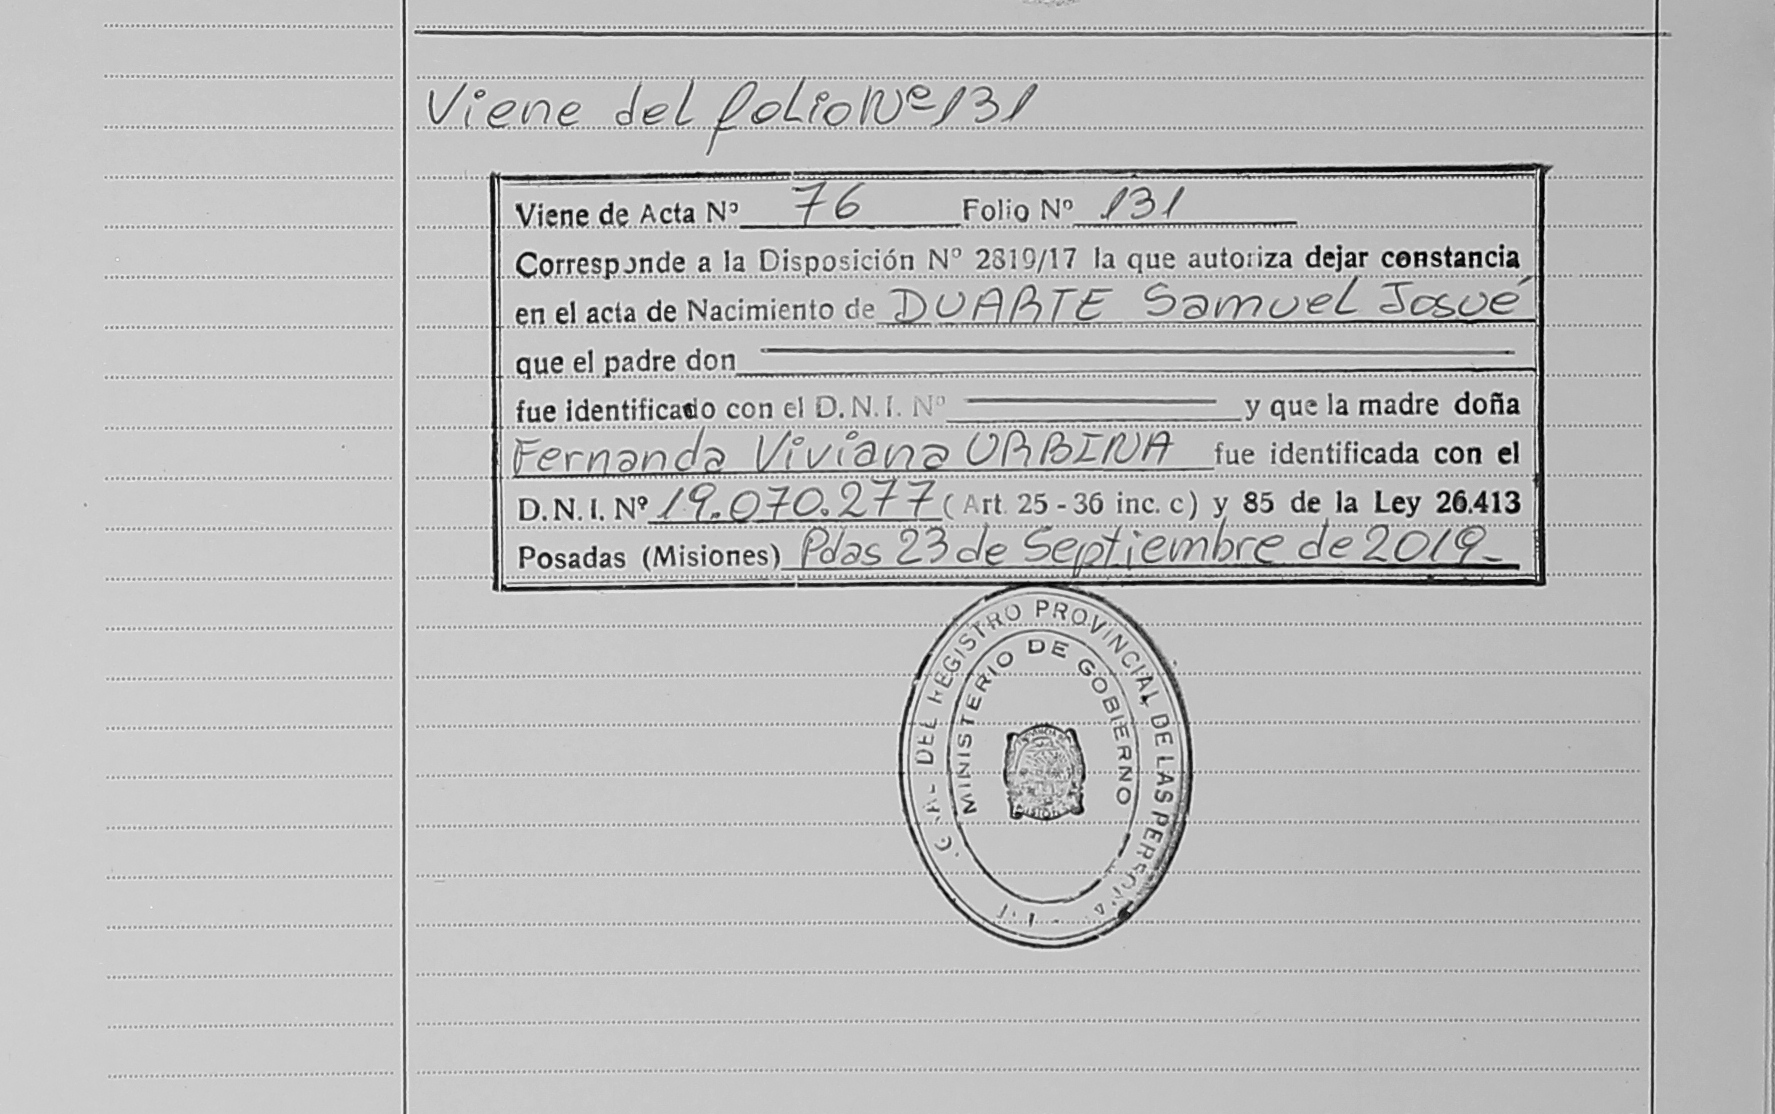 Viene del folio Nº 131
Viene de Acta Nº 76 Folio Nº 131
Corresponde a la Disposición Nº 2819/17 la que autoriza dejar constancia
en el acta de Nacimiento de DUARTE Samuel Josué
que el padre don
fue identificado con el D.N.I. Nº y que la madre doña
Fernanda Viviana URBINA fue identificada con el
D.N.I. Nº 19.070.277 (Art. 25 - 36 inc. c) y 85 de la Ley 26.413
Posadas (Misiones) Pdas 23 de Septiembre de 2019_
DEL REGISTRO PROVINCIAL DE LAS
MINISTERIO DE GOBIERNO